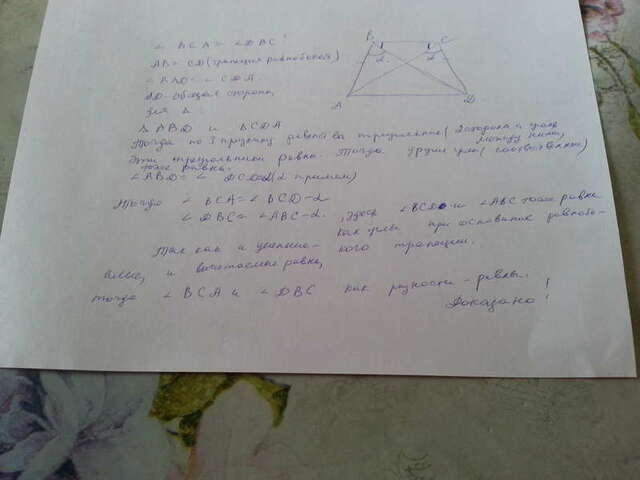 ∠ BCA = ∠DBC
AB = CD (трапеция равнобокая)
∠ BAD = ∠ CDA.
AD - общая сторона
для Δ
B C
1 1
α α
A D
Δ ABD и ΔCDA
Тогда по I признаку равенства треугольников (2 стороны и угол между ними)
Эти треугольники равны. Тогда другие углы (соответственно)
тоже равны.
∠ABD = ∠ (α примем)
Тогда ∠ BCA = ∠ BCD - α
∠ DBC = ∠ABC - α. , Здесь ∠BCD и ∠ABC тоже равны
как углы при основании равнобо-
кого трапеции.
Так как и уменьшае-
мые, и вычитаемые равны,
тогда ∠ BCA и ∠ DBC как разности - равны.
Доказано!